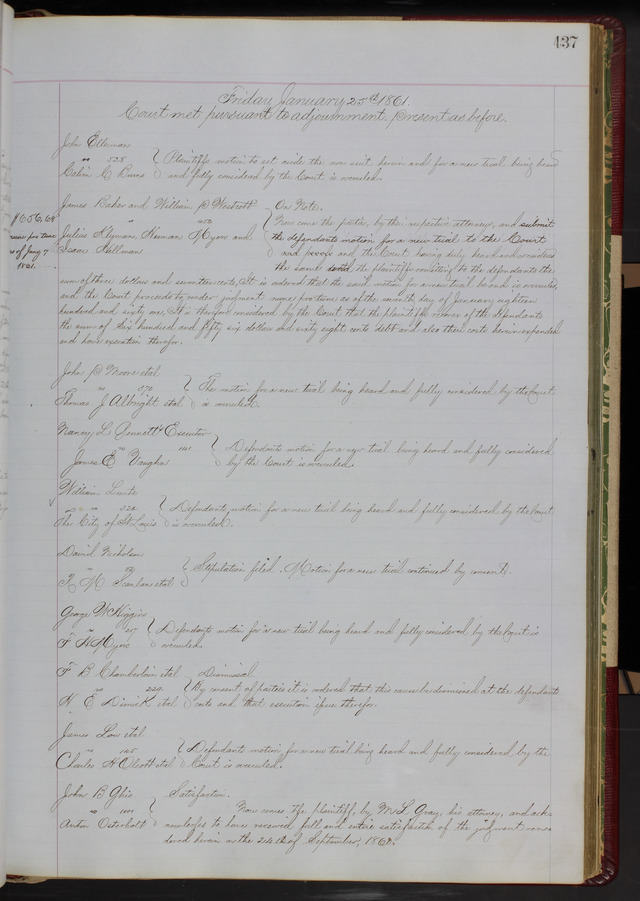 437
Friday January 25th 1861.
Court met pursuant to adjournment. Present as before.
John Elleman
vs 528 Plaintiffs motion to set aside the non suit herein and for a new trial being heard
Burns and fully considered by the Court is overruled.
James Baker and William B Westcott On Note.
vs Now come the parties, by their respective attorneys, and submit
$656.68
Julius Heyman, Herman Myers and the defendants motion for a new trial to the Court
as of Jany 7
Isaac Hellman and the Court having duly heard and considered
1861.
the same the plaintiffs remitting to the defendants the
sum of three dollars and seventeen cents, It is ordered that the said motion for a new trial be and is overruled,
and the Court proceeds to render judgment nunc pro tunc as of the seventh day of January eighteen
hundred and sixty one, It is therefore considered by the Court that the plaintiffs recover of the defendants
the sum of Six hundred and fifty six dollars and sixty eight cents debt and also their costs herein expended
and have execution therefor.
John B Moore etal
vs The motion for a new trial being heard and fully considered by the Court
Thomas J Albright etal is overruled.
Nancy L Executor
vs 1141 Defendants motion for a new trial being heard and fully considered
James E Vaughn by the Court is overruled.
William
vs 324 Defendants motion for a new trial being heard and fully considered by the Court
The City of St Louis is overruled.
David Nicholson
vs Stipulation filed. Motion for a new trial continued by consent.
M Scanlan etal
George W Higgins
vs Defendants motion for a new trial being heard and fully considered by the Court is
F H Myers overruled.
F B Chamberlain etal Dismissal
vs 229 By consent of parties it is ordered that this cause be dismissed at the defendants
H E Dimick etal costs and that execution issue therefor.
James Low etal
vs 165 Defendants motion for a new trial being heard and fully considered by the
Charles H Olcott etal Court is overruled.
John B Ghio Satisfaction.
vs Now comes the plaintiff, by M L Gray, his attorney, and ack-
Anton Osterholt nowledges to have received full and entire satisfaction of the judgment ren-
dered herein on the 24th of September, 1860.